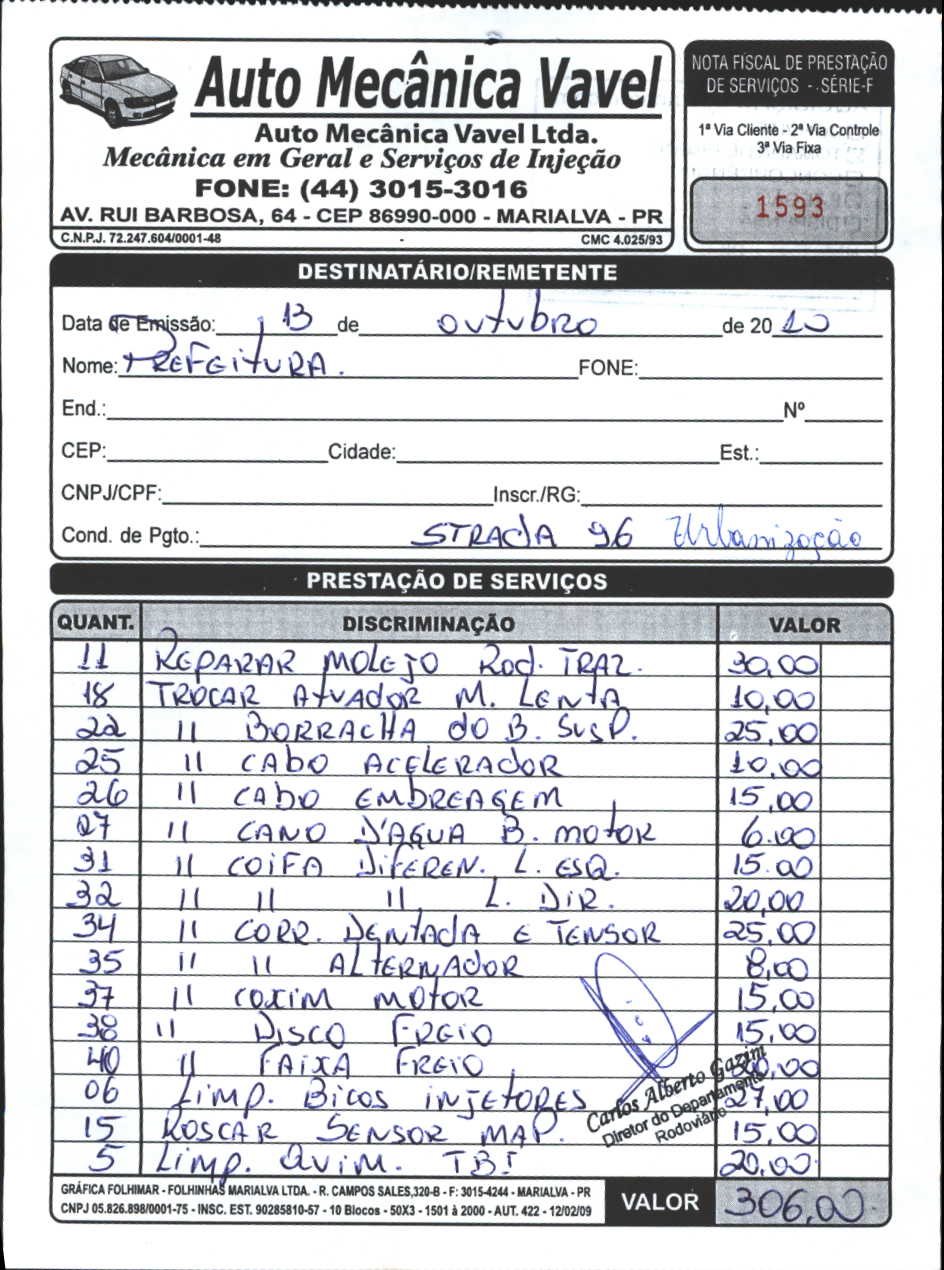 Auto Mecânica Vavel
Auto Mecânica Vavel Ltda.
Mecânica em Geral e Serviços de Injeção
FONE: (44) 3015-3016
AV. RUI BARBOSA, 64 - CEP 86990-000 - MARIALVA - PR
C.N.P.J. 72.247.604/0001-48 CMC 4.025/93
NOTA FISCAL DE PRESTAÇÃO
DE SERVIÇOS - SÉRIE-F
1ª Via Cliente - 2ª Via Controle
3ª Via Fixa
1593
DESTINATÁRIO/REMETENTE
Data de Emissão: 13 de outubro de 20 10
Nome: PREFEITURA. FONE:
End.: Nº
CEP: Cidade: Est.:
CNPJ/CPF: Inscr./RG:
Cond. de Pgto.: STRADA 96 Urbanização
PRESTAÇÃO DE SERVIÇOS
QUANT. DISCRIMINAÇÃO VALOR
11 REPARAR MOLEJO Rod. TRAZ. 30,00
18 TROCAR ATUADOR M. LENTA 10,00
22 11 BORRACHA do B. SUSP. 25,00
25 11 CABO ACELERADOR 10,00
26 11 CABO EMBREAGEM 15,00
27 11 CANO D'AGUA B. MOTOR 6.00
31 11 COIFA DIFEREN. L. ESQ. 15.00
32 11 11 11 L. DIR. 20,00
34 11 CORR. DENTADA E TENSOR 25,00
35 11 11 ALTERNADOR 8,00
37 11 COXIM MOTOR 15,00
38 11 DISCO FREIO 15,00
40 11 FAIXA FREIO
06 LIMP. BICOS INJETORES 27,00
15 ROSCAR SENSOR MAP. 15,00
5 LIMP. QUIM. TBI 20,00
Carlos Alberto Gazim
Diretor do Departamento
Rodoviário
GRÁFICA FOLHIMAR - FOLHINHAS MARIALVA LTDA. - R. CAMPOS SALES,320-B - F: 3015-4244 - MARIALVA - PR
CNPJ 05.826.898/0001-75 - INSC. EST. 90285810-57 - 10 Blocos - 50X3 - 1501 à 2000 - AUT. 422 - 12/02/09
VALOR 306,00